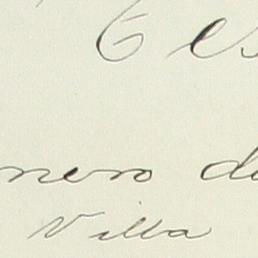 6 es
nero de
Villa